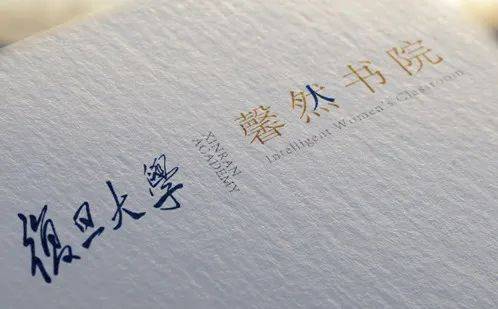 復旦大學
XINRAN
ACADEMY
馨然书院
Intelligent Women's Classroom